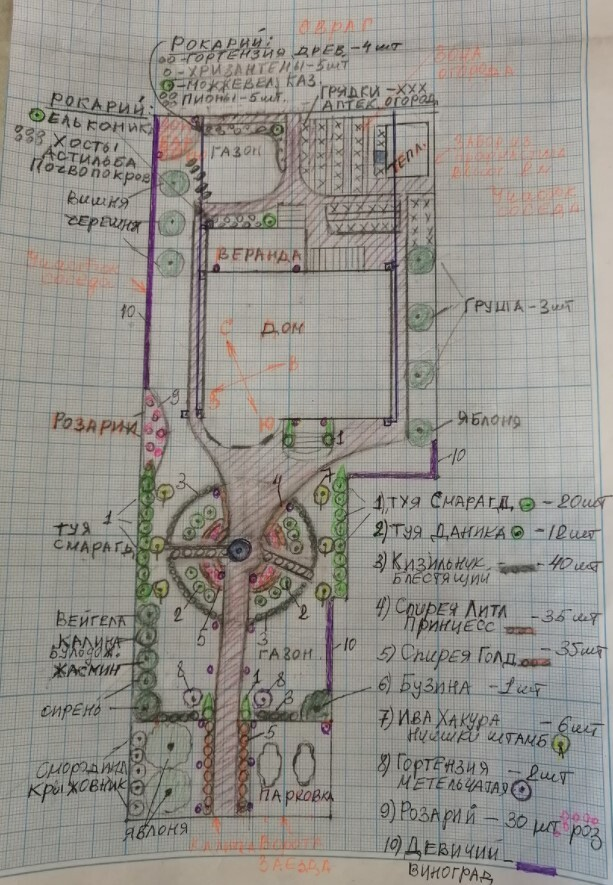 ОВРАГ
РОКАРИЙ:
ГОРТЕНЗИЯ ДРЕВ.-4шт
ХРИЗАНТЕМЫ-5шт
МОЖЖЕВЕЛ. КАЗ.
ПИОНЫ-5шт.
ЗОНА
ОГОРОДА
ГРЯДКИ-ХХХ
АПТЕК. ОГОРОД
РОКАРИЙ:
ЕЛЬ КОНИК.
ХОСТЫ
АСТИЛЬБА
ПОЧВОПОКРОВ
ГАЗОН
ТЕПЛ.
УЧАСТОК
СОСЕДА
ВИШНЯ
ЧЕРЕШНЯ
УЧАСТОК
СОСЕДА
ВЕРАНДА
ДОМ
С
В
Ю
10
ГРУША-3шт
ЯБЛОНЯ
9
РОЗАРИЙ
1
10
3
4
7
1
ТУЯ
СМАРАГД
2
5
3
2
1) ТУЯ СМАРАГД - 20шт
2) ТУЯ ДАНИКА - 12шт
3) КИЗИЛЬНИК БЛЕСТЯЩИЙ - 40шт
4) СПИРЕЯ ЛИТЛ ПРИНЦЕСС - 35шт
5) СПИРЕЯ ГОЛД. - 35шт
6) БУЗИНА - 1шт
7) ИВА ХАКУРА НИШИКИ ШТАМБ - 6шт
8) ГОРТЕНЗИЯ МЕТЕЛЬЧАТАЯ - 2шт
9) РОЗАРИЙ - 30 шт. роз
10) ДЕВИЧИЙ ВИНОГРАД
ВЕЙГЕЛА
КАЛИНА
БУЛЬДОН.
ЖАСМИН
СИРЕНЬ
ГАЗОН
10
8
1
8
6
3
5
СМОРОДИНА
КРЫЖОВНИК
ЯБЛОНЯ
ПАРКОВКА
КАЛИТКА
ВОРОТА
ЗАЕЗДА